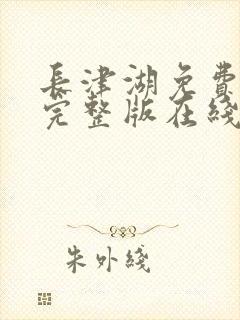 長津湖免費
完整版在綫
朱外綫